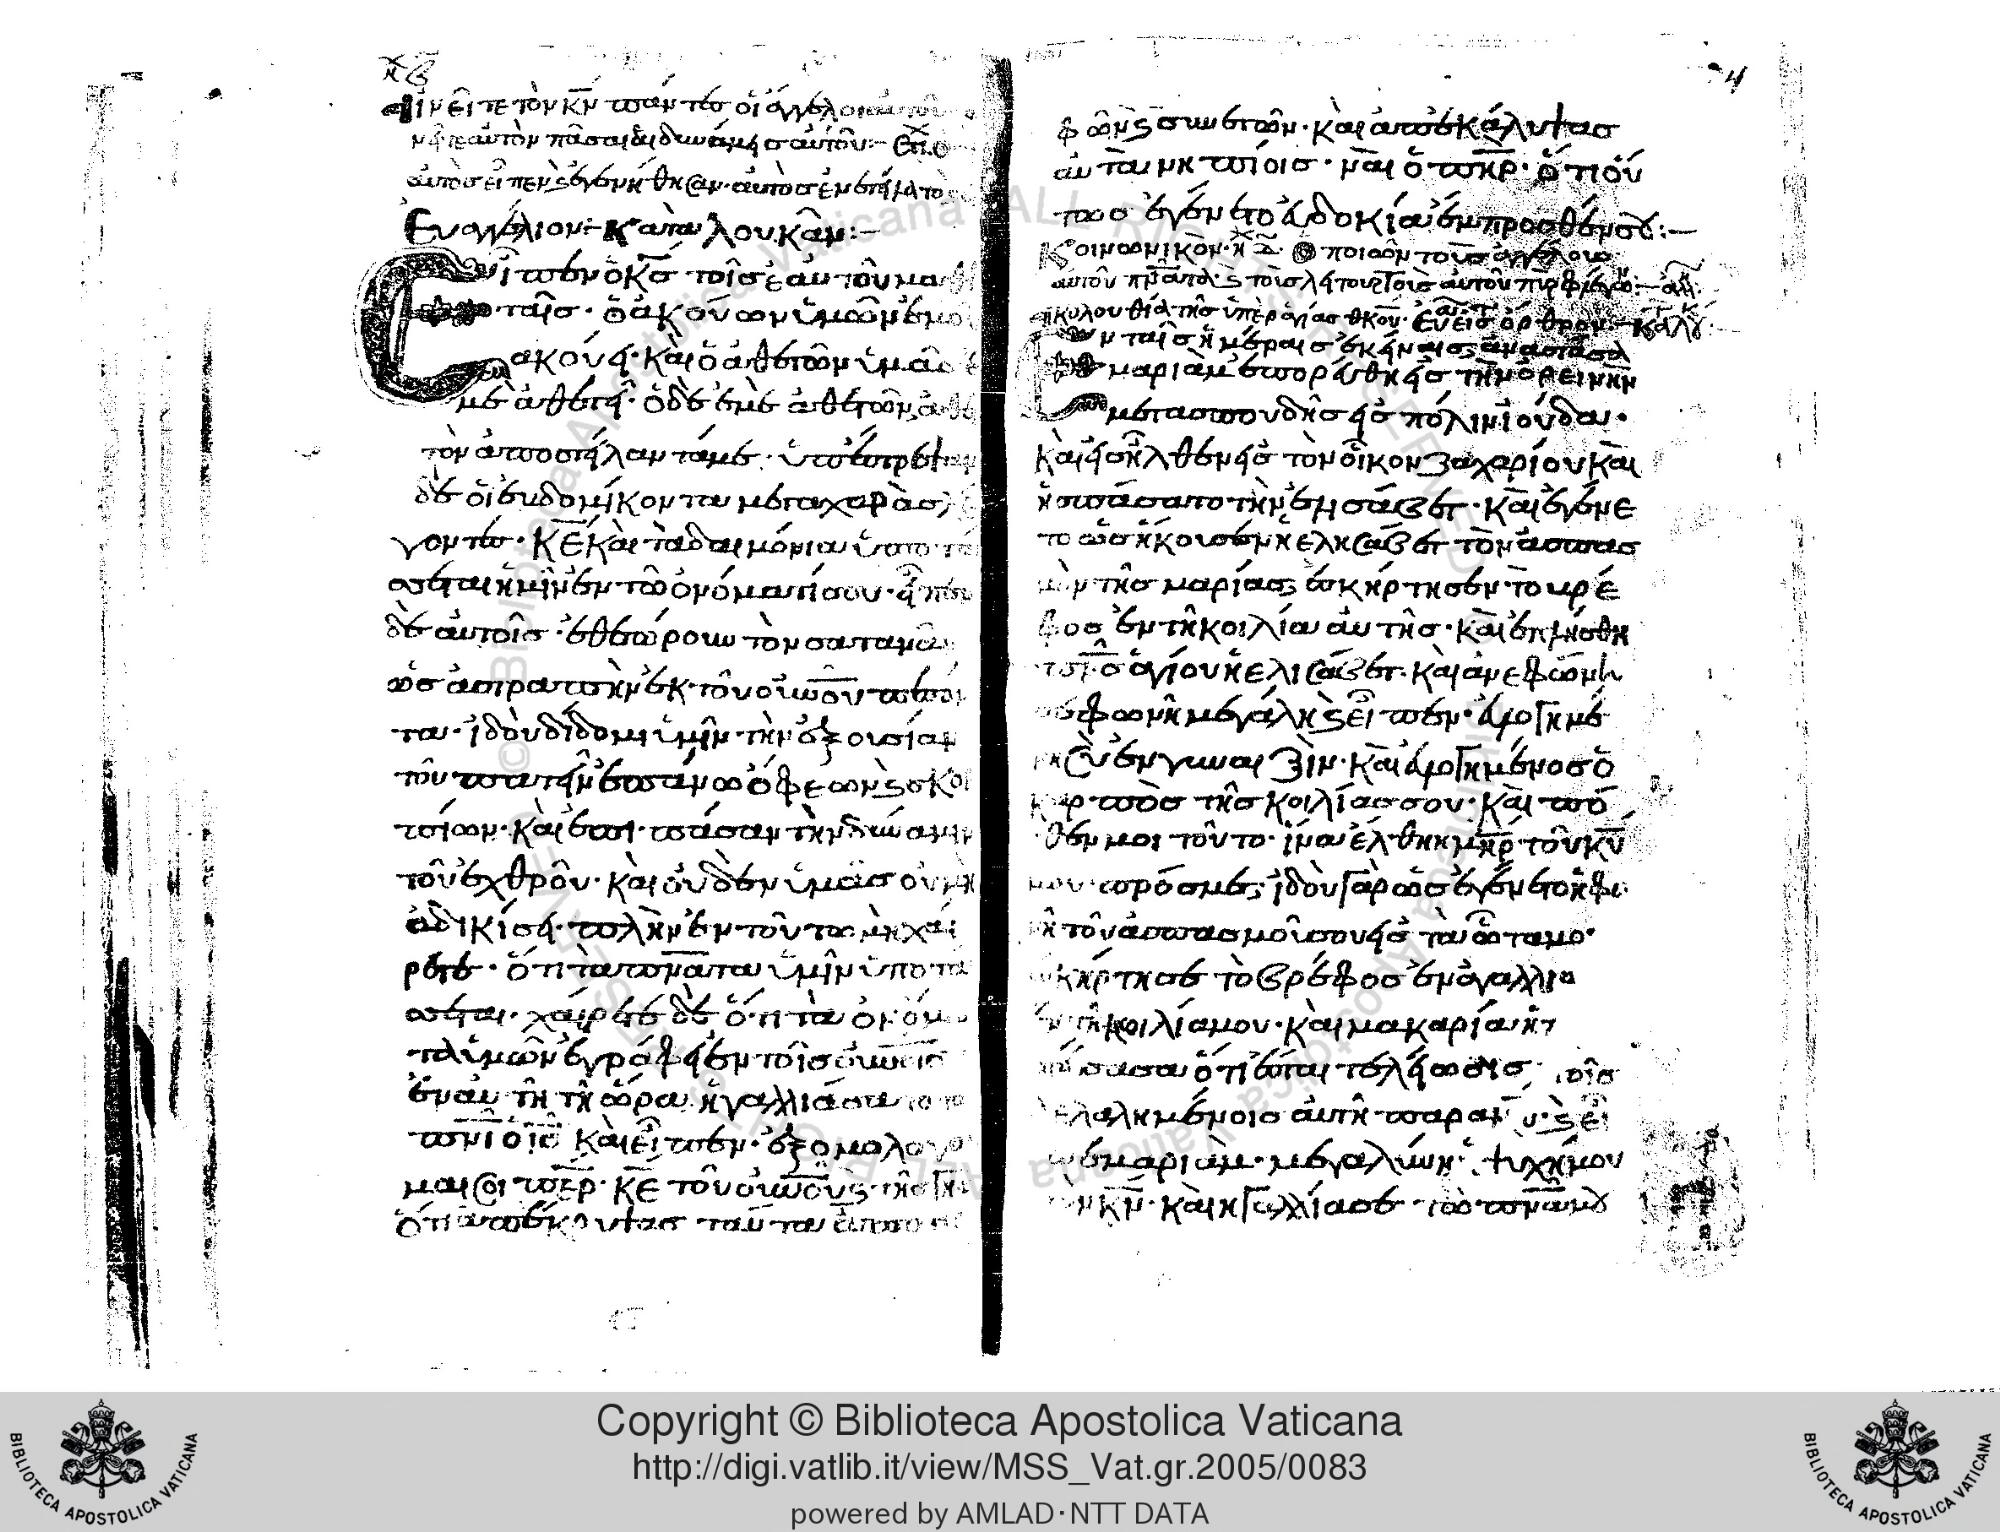 αἰνεῖτε τὸν κν πάντες οἱ ἄγγελοι αὐτοῦ
αὐτὸν πᾶσαι αἱ δυνάμεις αὐτοῦ:-
αὐτὸς εἶπεν ἐγενήθησαν· αὐτὸς ἐνετείλατο
Εὐαγγέλιον:- κατὰ λουκᾶν:-
Εἶπεν ὁ κς τοῖς ἑαυτοῦ μαθη
ταῖς· ὁ ἀκούων ὑμῶν ἐμοῦ
ἀκούει· καὶ ὁ ἀθετῶν ὑμᾶς
ἐμὲ ἀθετεῖ· ὁ δὲ ἐμὲ ἀθετῶν, ἀθε
τὸν ἀποστείλαντά με· ὑπέστρεψαν
δὲ οἱ ἑυδομίκοντα μετα χαρᾶς λέ
γοντες· κέ καὶ τὰ δαιμόνια ὑπο τα
σεται ἡμῖν ἐν τῶ ὀνόματί σου· εἶπεν
δὲ αὐτοῖς· ἐθεώρουν τὸν σατανᾶν
ὡς ἀστραπὴν ἐκ τοῦ οὐνοῦ πεσόν
τα· ἰδοὺ δίδομι ὑμῖν τὴν ἐξουσίαν
τοῦ πατεῖν ἐπάνω ὄφεων ϗ σκορ
πίων· καὶ ἐπι πᾶσαν τὴν δύναμιν
τοῦ ἐχθροῦ· καὶ οὐδὲν ὑμᾶς οὐ μὴ
ἀδικίσει· πλὴν ἐν τούτω μὴ χαί
ρετε· ὅτι τὰ πνατα ὑμῖν ὑποτα
σεται· χαίρετε δὲ ὅτι τὰ ὀνόμα
τα ὑμῶν ἐγράφει ἐν τοῖς οὐνοῖς
ἐν αὐτῆ τῆ ὥρα ἠγαλλιάσατο τῶ
πνι ὁ ις καὶ εἶπεν· ἐξομολογοῦ
μαι σοι περ· κε τοῦ οὐνοῦ ϗ τῆς γῆς
ὅτι ἀπέκρυψας ταῦτα ἀπὸ σο
φῶν ϗ συνετῶν· καὶ ἀπεκάλυψας
αὐτὰ νηπίοις· ναὶ ὁ πηρ· ὅτι οὕ
τως ἐγένετο εὐδοκία ἔμπροσθέν σου:-
Κοινωνικὸν· ὁ ποιῶν τοὺς ἀγγέλους
αὐτοῦ πνατα· ϗ τοὺς λειτουργοὺς αὐτοῦ
ἀκολουθία τῆς ὑπεραγίας θκου· εὐα εἰς ὀρθρον:-
Ἐν ταῖς ἡμέραις ἐκείναις ἀναστᾶσα
μαριὰμ ἐπορεύθη εἰς τὴν ὀρεινὴν
μετα σπουδῆς εἰς πόλιν ἰούδα·
καὶ εἰσῆλθεν εἰς τὸν οἶκον ζαχαρίου καὶ
ἠσπάσατο τὴν ἐλησάβετ· καὶ ἐγένε
το ὡς ἤκουσεν ἡ ἐλησάβετ τὸν ἀσπασ
μὸν τῆς μαρίας ἐσκήρτησεν τὸ βρέ
φος ἐν τῆ κοιλία αὐτῆς· καὶ ἐπλήσθη
πνς ἁγίου ἡ ἐλισάβετ· καὶ ἀνεφώνη
σε φωνῆ μεγάλη ϗ εἶπεν· εὐλογημέ
νη σὺ ἐν γυναιξὶν· καὶ εὐλογημένος ὁ
καρπὸς τῆς κοιλίας σου· καὶ πό
θεν μοι τοῦτο· ἵνα ἔλθη ἡ μηρ τοῦ κυ
μου πρός με· ἰδοὺ γὰρ ὡς ἐγένετο ἡ φω
νὴ τοῦ ἀσπασμοῦ σου εἰς τὰ ὦτα μο·
ἐσκήρτησε τὸ βρέφος ἐν ἀγαλλια
ἐν τῆ κοιλία μου· καὶ μακαρία ἡ
πιστεύσασα ὅτι ἔσται τελείωσις τοῖς
λελαλημένοις αὐτῆ παρα κυ· ϗ εἶ
πε μαριὰμ· μεγαλύνει ἡ ψυχή μου
τὸν κν· καὶ ἠγαλλίασε τὸ πνα μου
Copyright © Biblioteca Apostolica Vaticana
http://digi.vatlib.it/view/MSS_Vat.gr.2005/0083
powered by AMLAD·NTT DATA
BIBLIOTECA APOSTOLICA VATICANA
BIBLIOTECA APOSTOLICA VATICANA